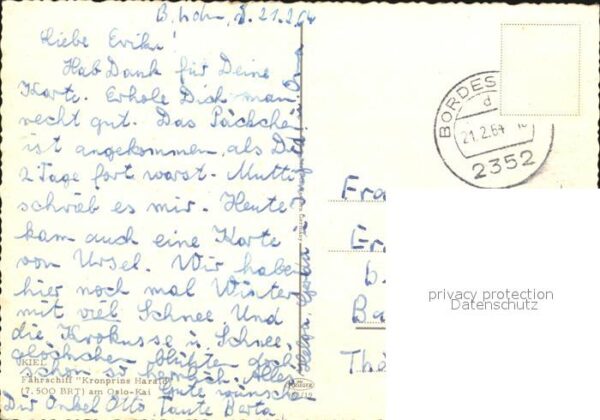 B.holm, d. 21.2.64
Liebe Erika!
Hab Dank für Deine
Karte. Erhole Dich man
recht gut. Das Päckchen
ist angekommen, als Du
2 Tage fort warst. Mutti
schrieb es mir. Heute
kam auch eine Karte
von Ursel. Wir haben
hier noch mal Winter
mit viel Schnee. Und
die Krokusse u. Schnee-
glöckchen blühten doch
schon so herrlich. Alles
Gute wünscht
Dir Onkel Otto Tante Berta
Helga,
KIEL
Fährschiff "Kronprins Harald"
(7.500 BRT) am Oslo-Kai
BORDES
d
21.2.64
2352
Fra
Fr
b.
Ba
Th
privacy protection
Datenschutz